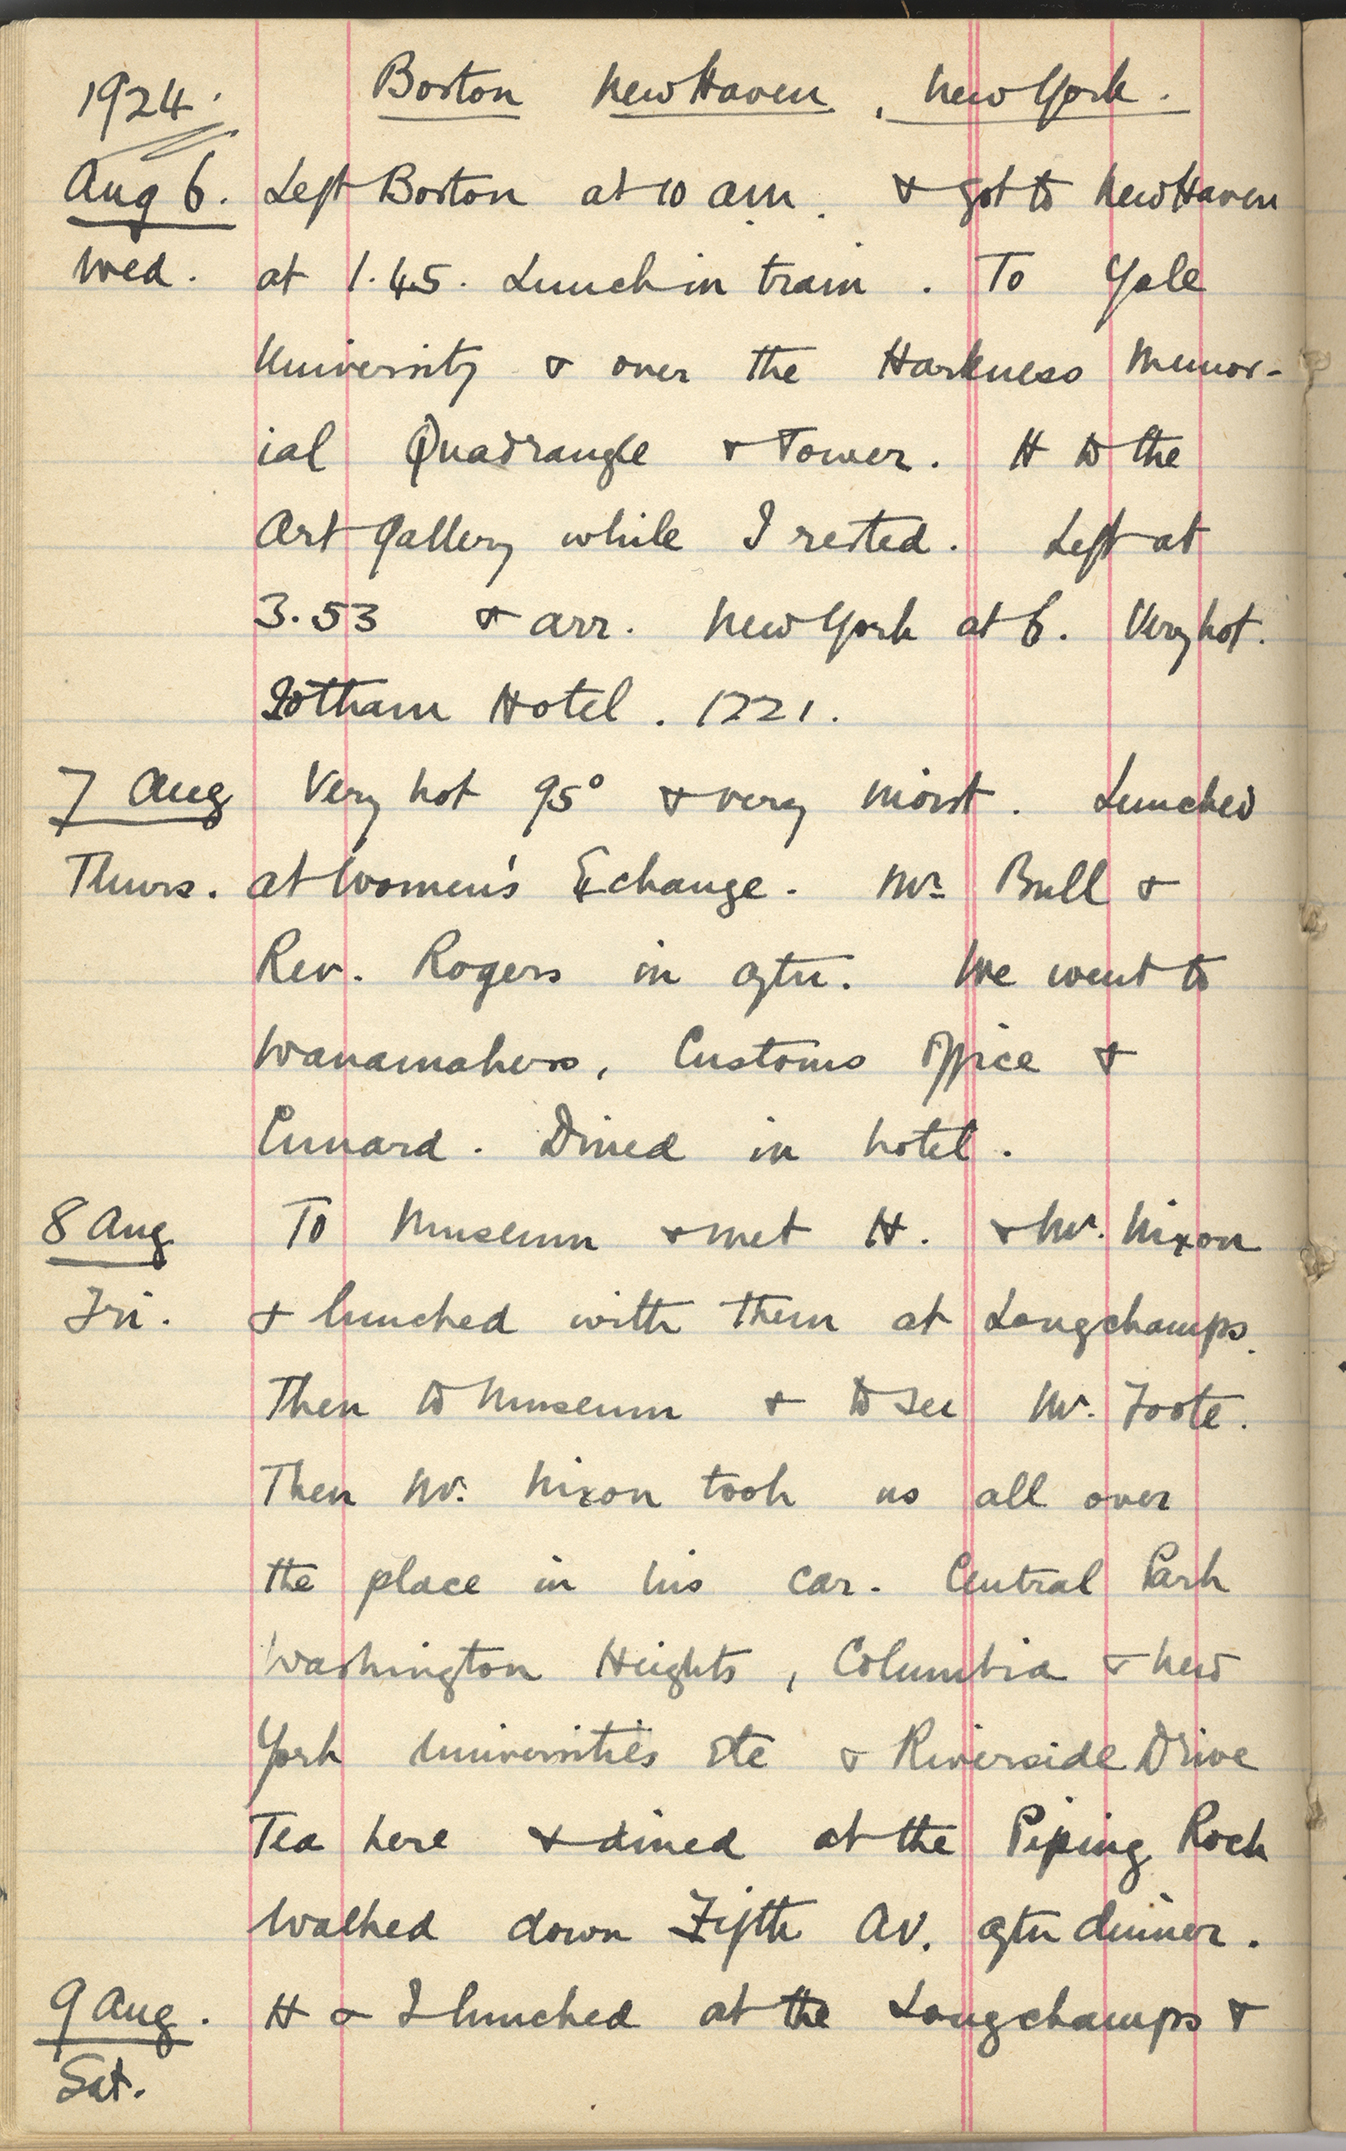 1924. Boston New Haven, New York.
Aug 6. Left Boston at 10 am. & got to New Haven
Wed. at 1.45. Lunch in train. To Yale
University & over the Harkness Memor-
ial Quadrangle & Tower. H to the
Art Gallery while I rested. Left at
3.53 & arr. New York at 6. Very hot.
Gotham Hotel. 1221.
7 Aug Very hot 95° & very moist. Lunched
Thurs. at Women's Exchange. Mr Bull &
Rev. Rogers in aftn. We went to
Wanamakers, Customs Office &
Cunard. Dined in hotel.
8 Aug To Museum & met H. & Mr. Nixon
Fri. & lunched with them at Longchamps.
Then to Museum & to see Mr. Foote.
Then Mr. Nixon took us all over
the place in his car. Central Park
Washington Heights, Columbia & New
York Universities etc & Riverside Drive
Tea here & dined at the Piping Rock
Walked down Fifth Av. aftr dinner.
9 Aug. H & I lunched at the Longchamps &
Sat.